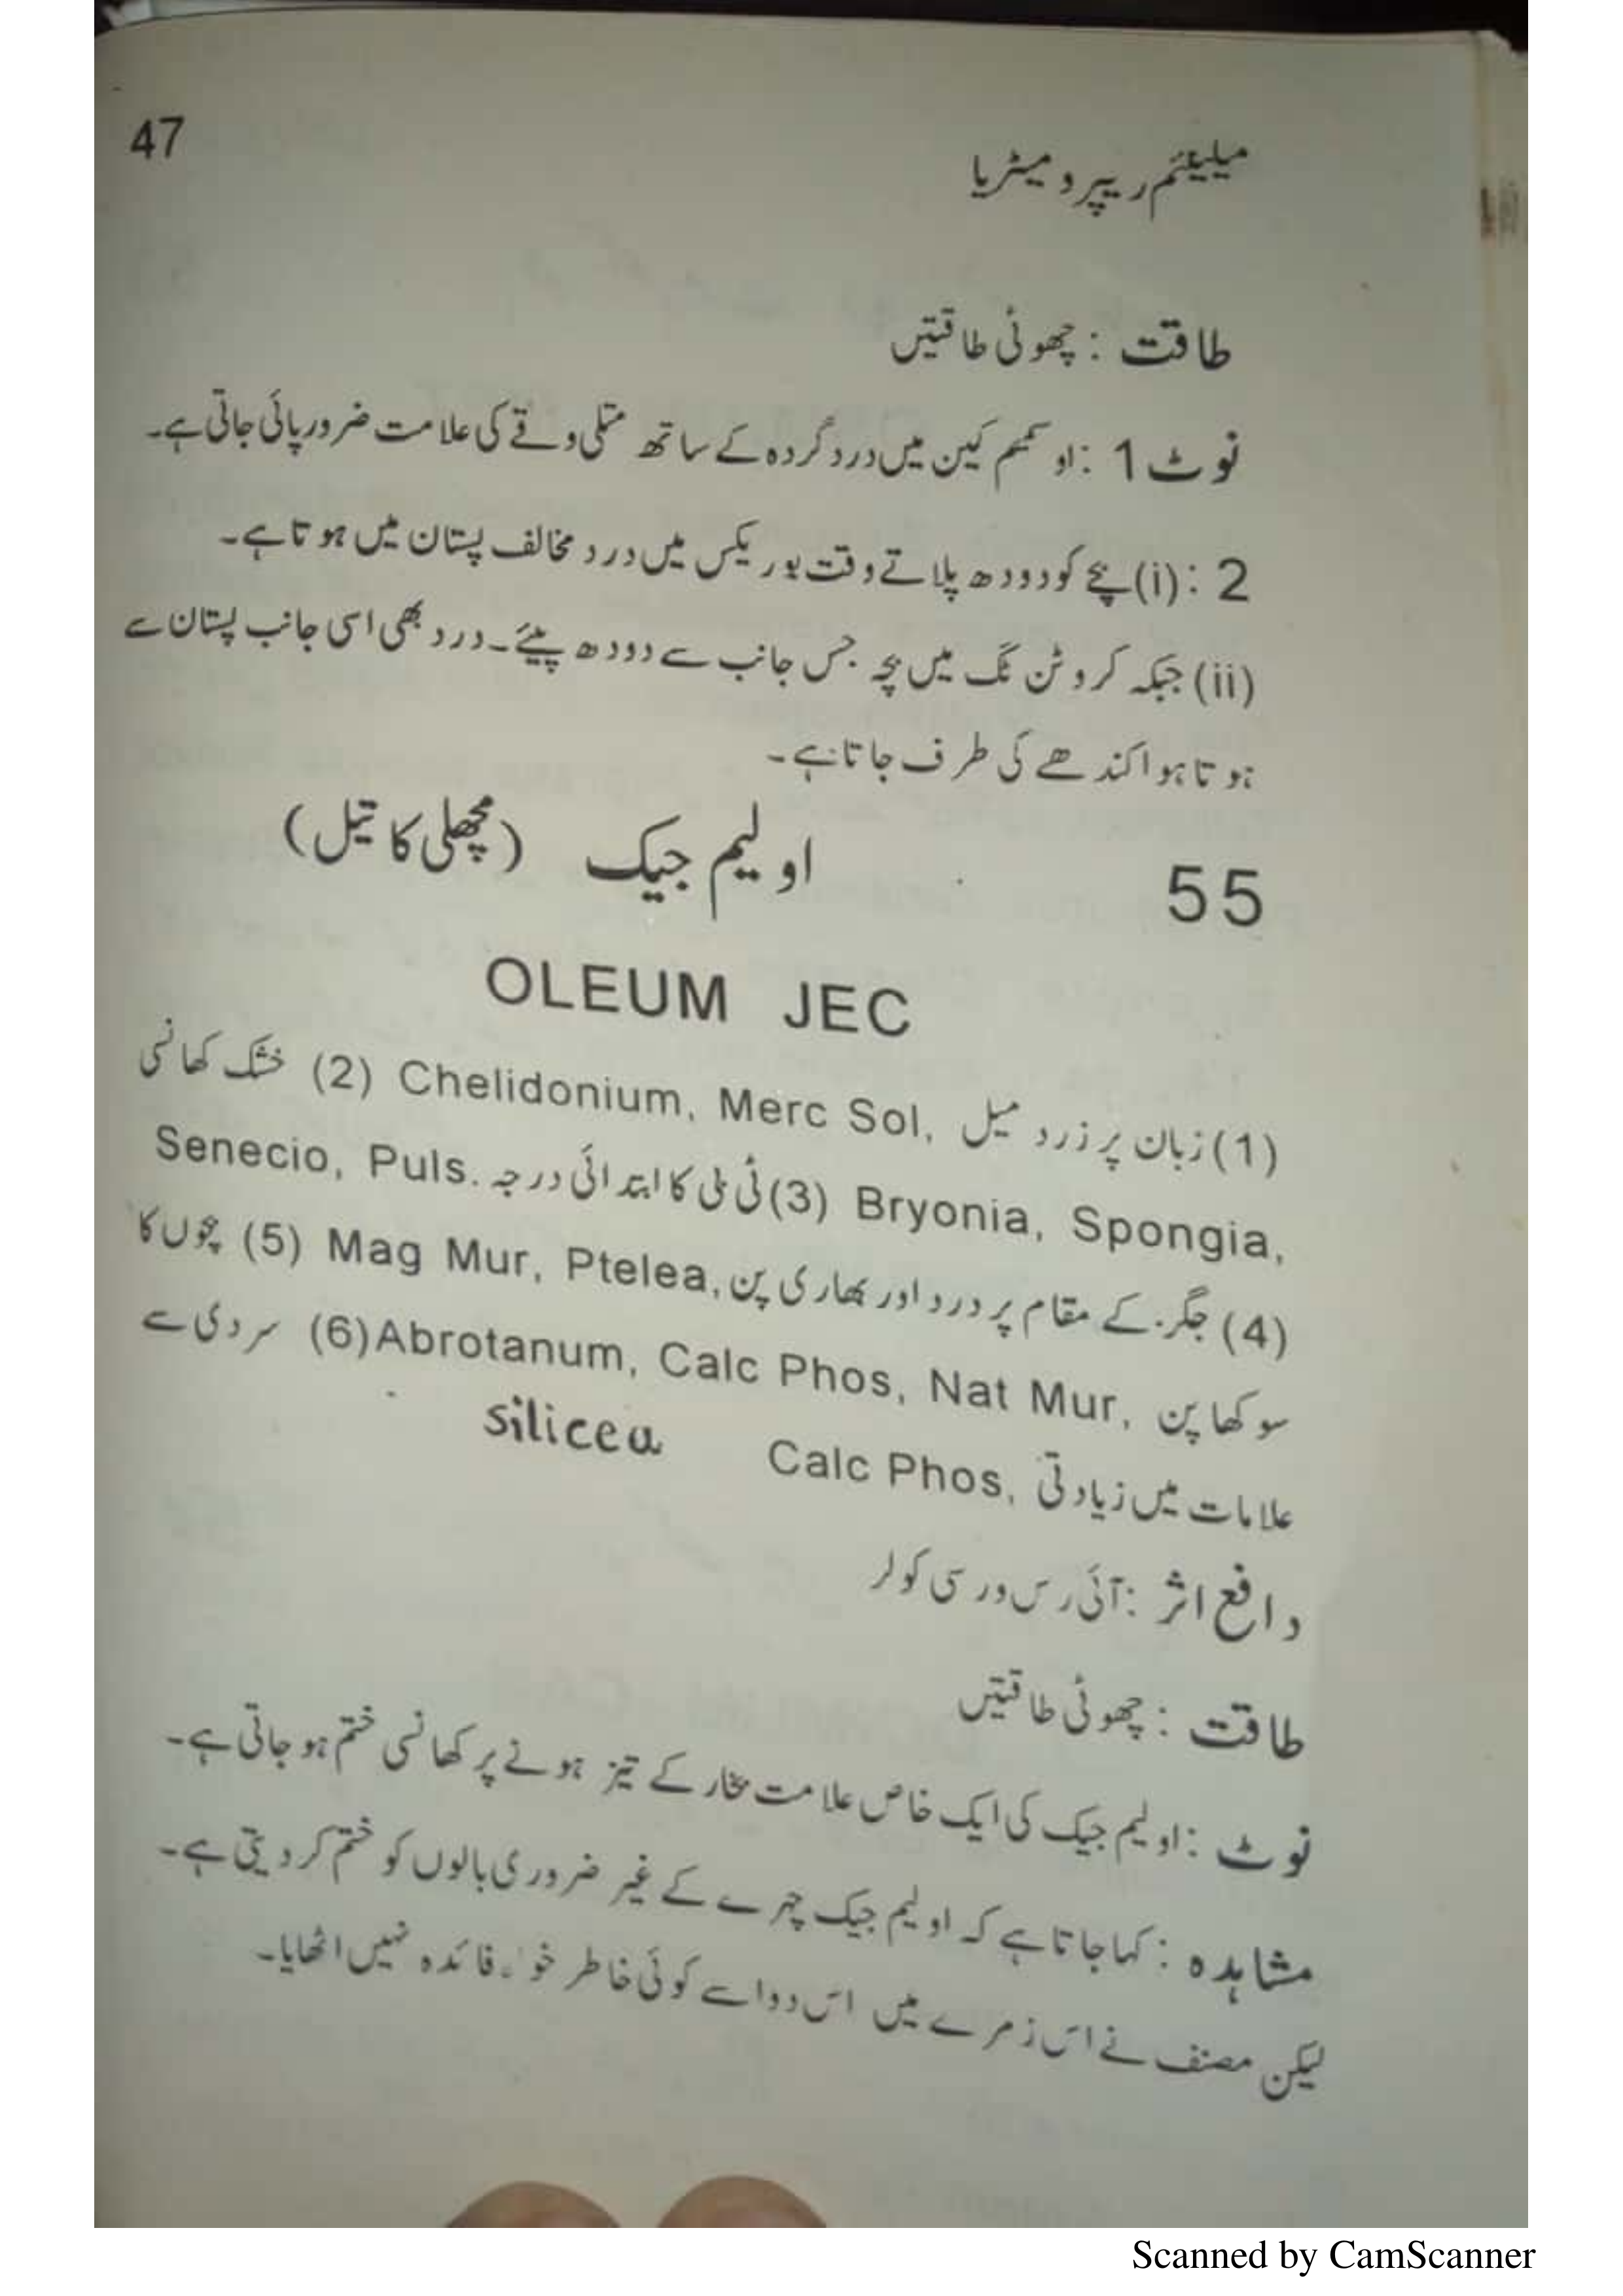 47
میلینئم ریپر و میٹریا
طاقت : چھوٹی طاقتیں
نوٹ 1 : او سمم کین میں درد گردہ کے ساتھ متلی وقے کی علامت ضرور پائی جاتی ہے۔
2 : (i) بچے کو دودھ پلاتے وقت بوریکس میں درد مخالف پستان میں ہوتا ہے۔
(ii) جبکہ کروٹن ٹگ میں بچہ جس جانب سے دودھ پیئے۔ درد بھی اسی جانب پستان سے
ہوتا ہوا کندھے کی طرف جاتا ہے۔
55 اولیم جیک (مچھلی کا تیل)
OLEUM JEC
(1) زبان پر زرد میل Chelidonium, Merc Sol, (2) خشک کھانسی
Bryonia, Spongia, (3) ٹی بی کا ابتدائی درجہ Senecio, Puls.
(4) جگر کے مقام پر درد اور بھاری پن Mag Mur, Ptelea, (5) بچوں کا
سوکھا پن Abrotanum, Calc Phos, Nat Mur, (6) سردی سے
علامات میں زیادتی Calc Phos, Silicea
دافع اثر : آئی رس ورسی کولر
طاقت : چھوٹی طاقتیں
نوٹ : اولیم جیک کی ایک خاص علامت بخار کے تیز ہونے پر کھانسی ختم ہو جاتی ہے۔
مشاہدہ : کہا جاتا ہے کہ اولیم جیک چہرے کے غیر ضروری بالوں کو ختم کر دیتی ہے۔
لیکن مصنف نے اس زمرے میں اس دوا سے کوئی خاطر فائدہ نہیں اٹھایا۔
Scanned by CamScanner